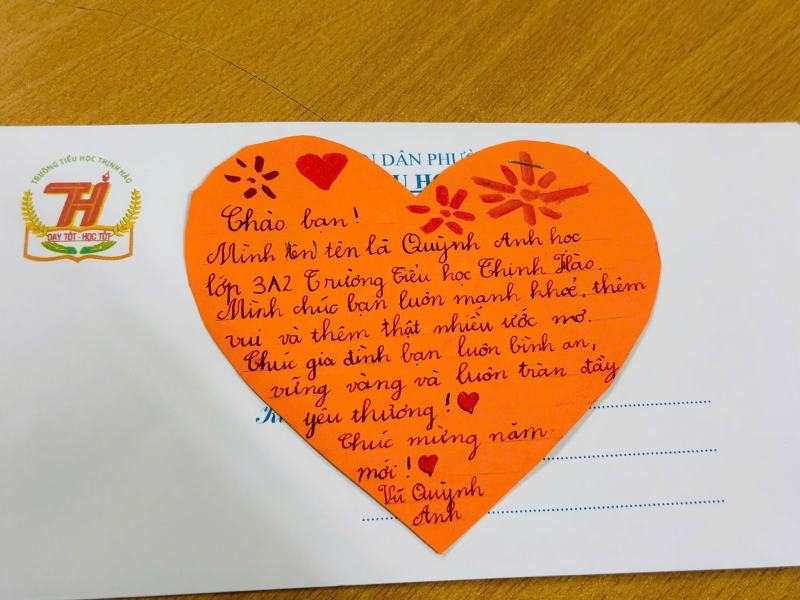 TRƯỜNG TIỂU HỌC THỊNH HÀO
TH
DẠY TỐT - HỌC TỐT
DÂN PHƯỜ
Chào bạn!
Mình (ên) tên là Quỳnh Anh học
lớp 3A2 Trường Tiểu học Thịnh Hào.
Mình chúc bạn luôn mạnh khoẻ, thêm
vui và thêm thật nhiều ước mơ.
Chúc gia đình bạn luôn bình an,
vững vàng và luôn tràn đầy
yêu thương!
Chúc mừng năm
mới!
Vũ Quỳnh
Anh